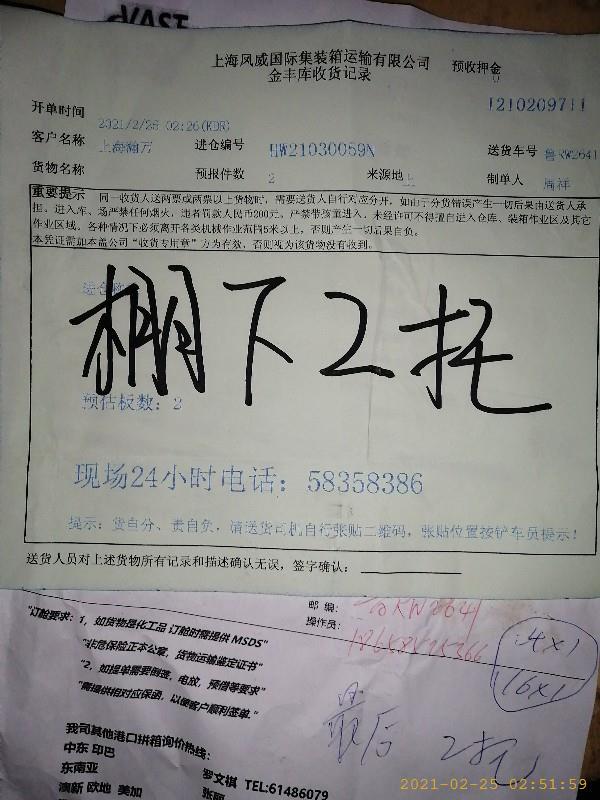 VAST
上海风威国际集装箱运输有限公司 预收押金
金丰库收货记录 0
开单时间 1210209711
2021/2/25 02:26(KDR)
客户名称 上海瀚万 进仓编号 HW21030059N 送货车号 鲁RW2641
货物名称 预报件数 2 来源地 上 制单人 周祥
重要提示 同一收货人送两票或两票以上货物时，需要送货人自行对应分开，如由于分货错误产生一切后果由送货人承
担。进入库、场严禁任何烟火，违者罚款人民币200元。严禁带孩童进入，未经许可不得擅自进入仓库、装箱作业区及其它
作业区域。各种情况下必须离开各类机械作业范围5米以上，否则产生一切后果自负。
本凭证需加盖公司“收货专用章”方为有效，否则视为该货物没有收到。
棚下2托
预估板数：2
现场24小时电话：58358386
提示：货自分、责自负，请送货司机自行张贴二维码，张贴位置按铲车员提示！
送货人员对上述货物所有记录和描述确认无误，签字确认：
邮 编：
操作员：
"订舱要求：1，如货物是化工品 订舱时需提供 MSDS"
"非危保险正本公章，货物运输鉴定证书"
"2，如提单需要倒签，电放，预借等要求"
"需提供相对应保函，以便客户顺利签单."
4X1
16X1
最后 2托
我司其他港口拼箱询价热线：
中东 印巴
东南亚 罗文祺 TEL:61486079
澳新 欧地 美加
2021-02-25 02:51:59